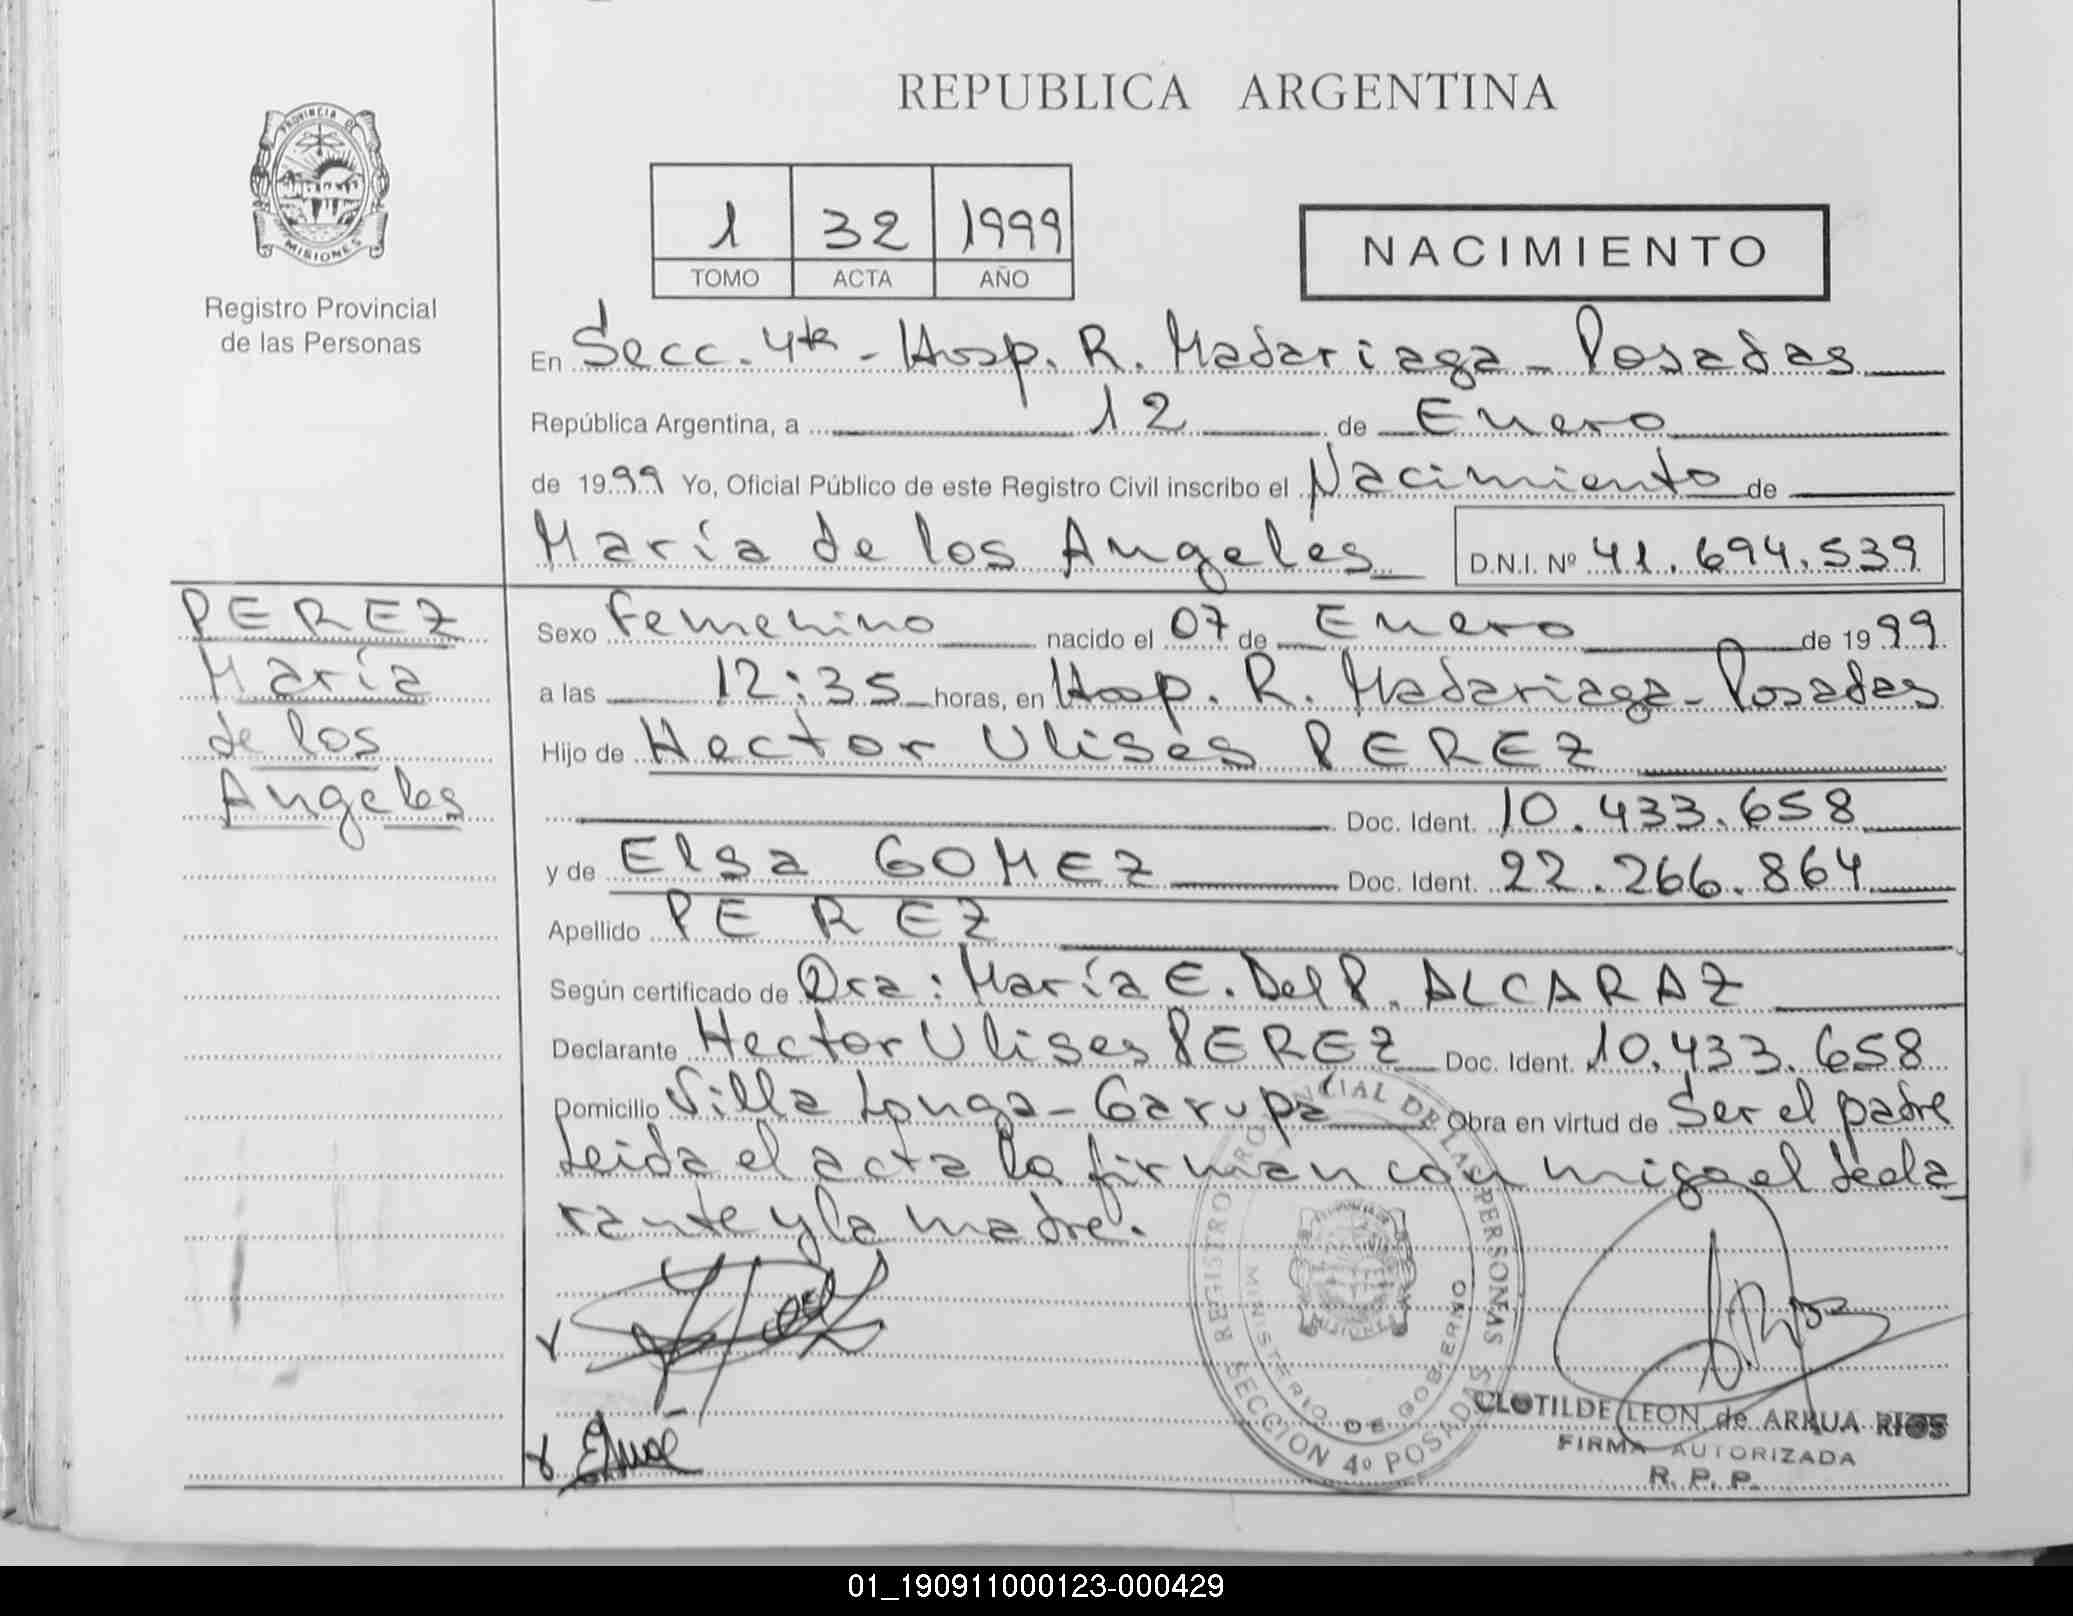 REPUBLICA ARGENTINA
PROVINCIA DE
MISIONES
Registro Provincial
de las Personas
1 32 1999
TOMO ACTA AÑO
NACIMIENTO
En Secc. 4ta - Hosp. R. Madariaga - Posadas
República Argentina, a 12 de Enero
de 1999 Yo, Oficial Público de este Registro Civil inscribo el Nacimiento de
María de los Angeles D.N.I. Nº 41.694.539
PEREZ
María
de los
Angeles
Sexo Femenino nacido el 07 de Enero de 1999
a las 12:35 horas, en Hosp. R. Madariaga - Posadas
Hijo de Hector Ulises PEREZ
Doc. Ident. 10.433.658
y de Elsa GOMEZ Doc. Ident. 22.266.864
Apellido PEREZ
Según certificado de Dra: María E. Del P. ALCARAZ
Declarante Hector Ulises PEREZ Doc. Ident. 10.433.658
Domicilio Villa Longa - Garupa Obra en virtud de Ser el padre
Leida el acta la firman con migo el decla
rante y la madre.
REGISTRO PROVINCIAL DE LAS PERSONAS
MINISTERIO DE GOBIERNO
SECCION 4º POSADAS
CLOTILDE LEON de ARRUA RIOS
FIRMA AUTORIZADA
R. P. P.
01_190911000123-000429